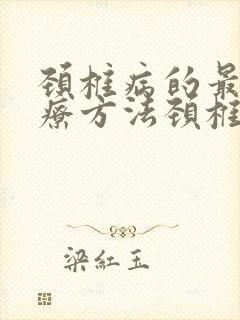 颈椎病的最
疗方法颈椎
梁紅玉